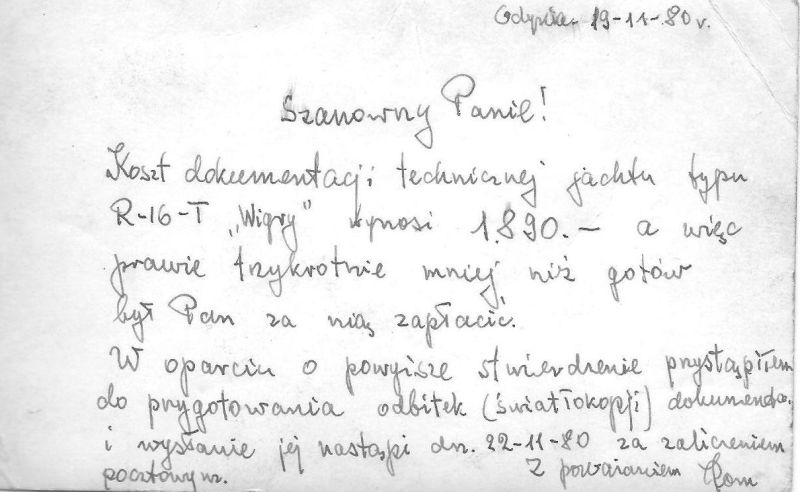 Gdynia - 19-11-80 r.
Szanowny Panie!
Koszt dokumentacji technicznej jachtu typu
R-16-T „Wigry” wynosi 1.890.- a więc
prawie trzykrotnie mniej niż gotów
był Pan za nią zapłacić.
W oparciu o powyższe stwierdzenie przystąpiłem
do przygotowania odbitek (światłokopji) dokumenta.
i wysłanie jej nastąpi dn. 22-11-80 za zaliczeniem
pocztowym.
Z poważaniem